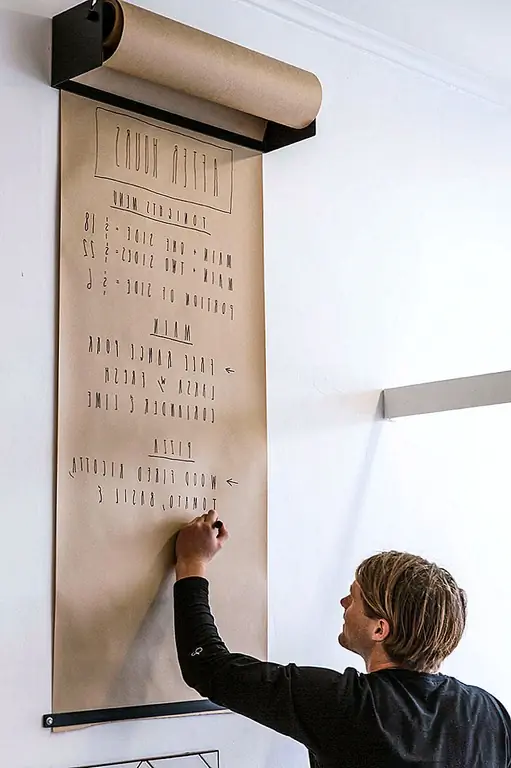 AFTER HOURS
TONIGHTS MENU
MAIN + ONE SIDE = $18
MAIN + TWO SIDES = $22
PORTION OF SIDE = $6
MAIN
→ FREE RANGE PORK
W/ FRESH
CORIANDER & LIME
PIZZA
→ WOOD FIRED RICOTTA,
TOMATO, BASIL &